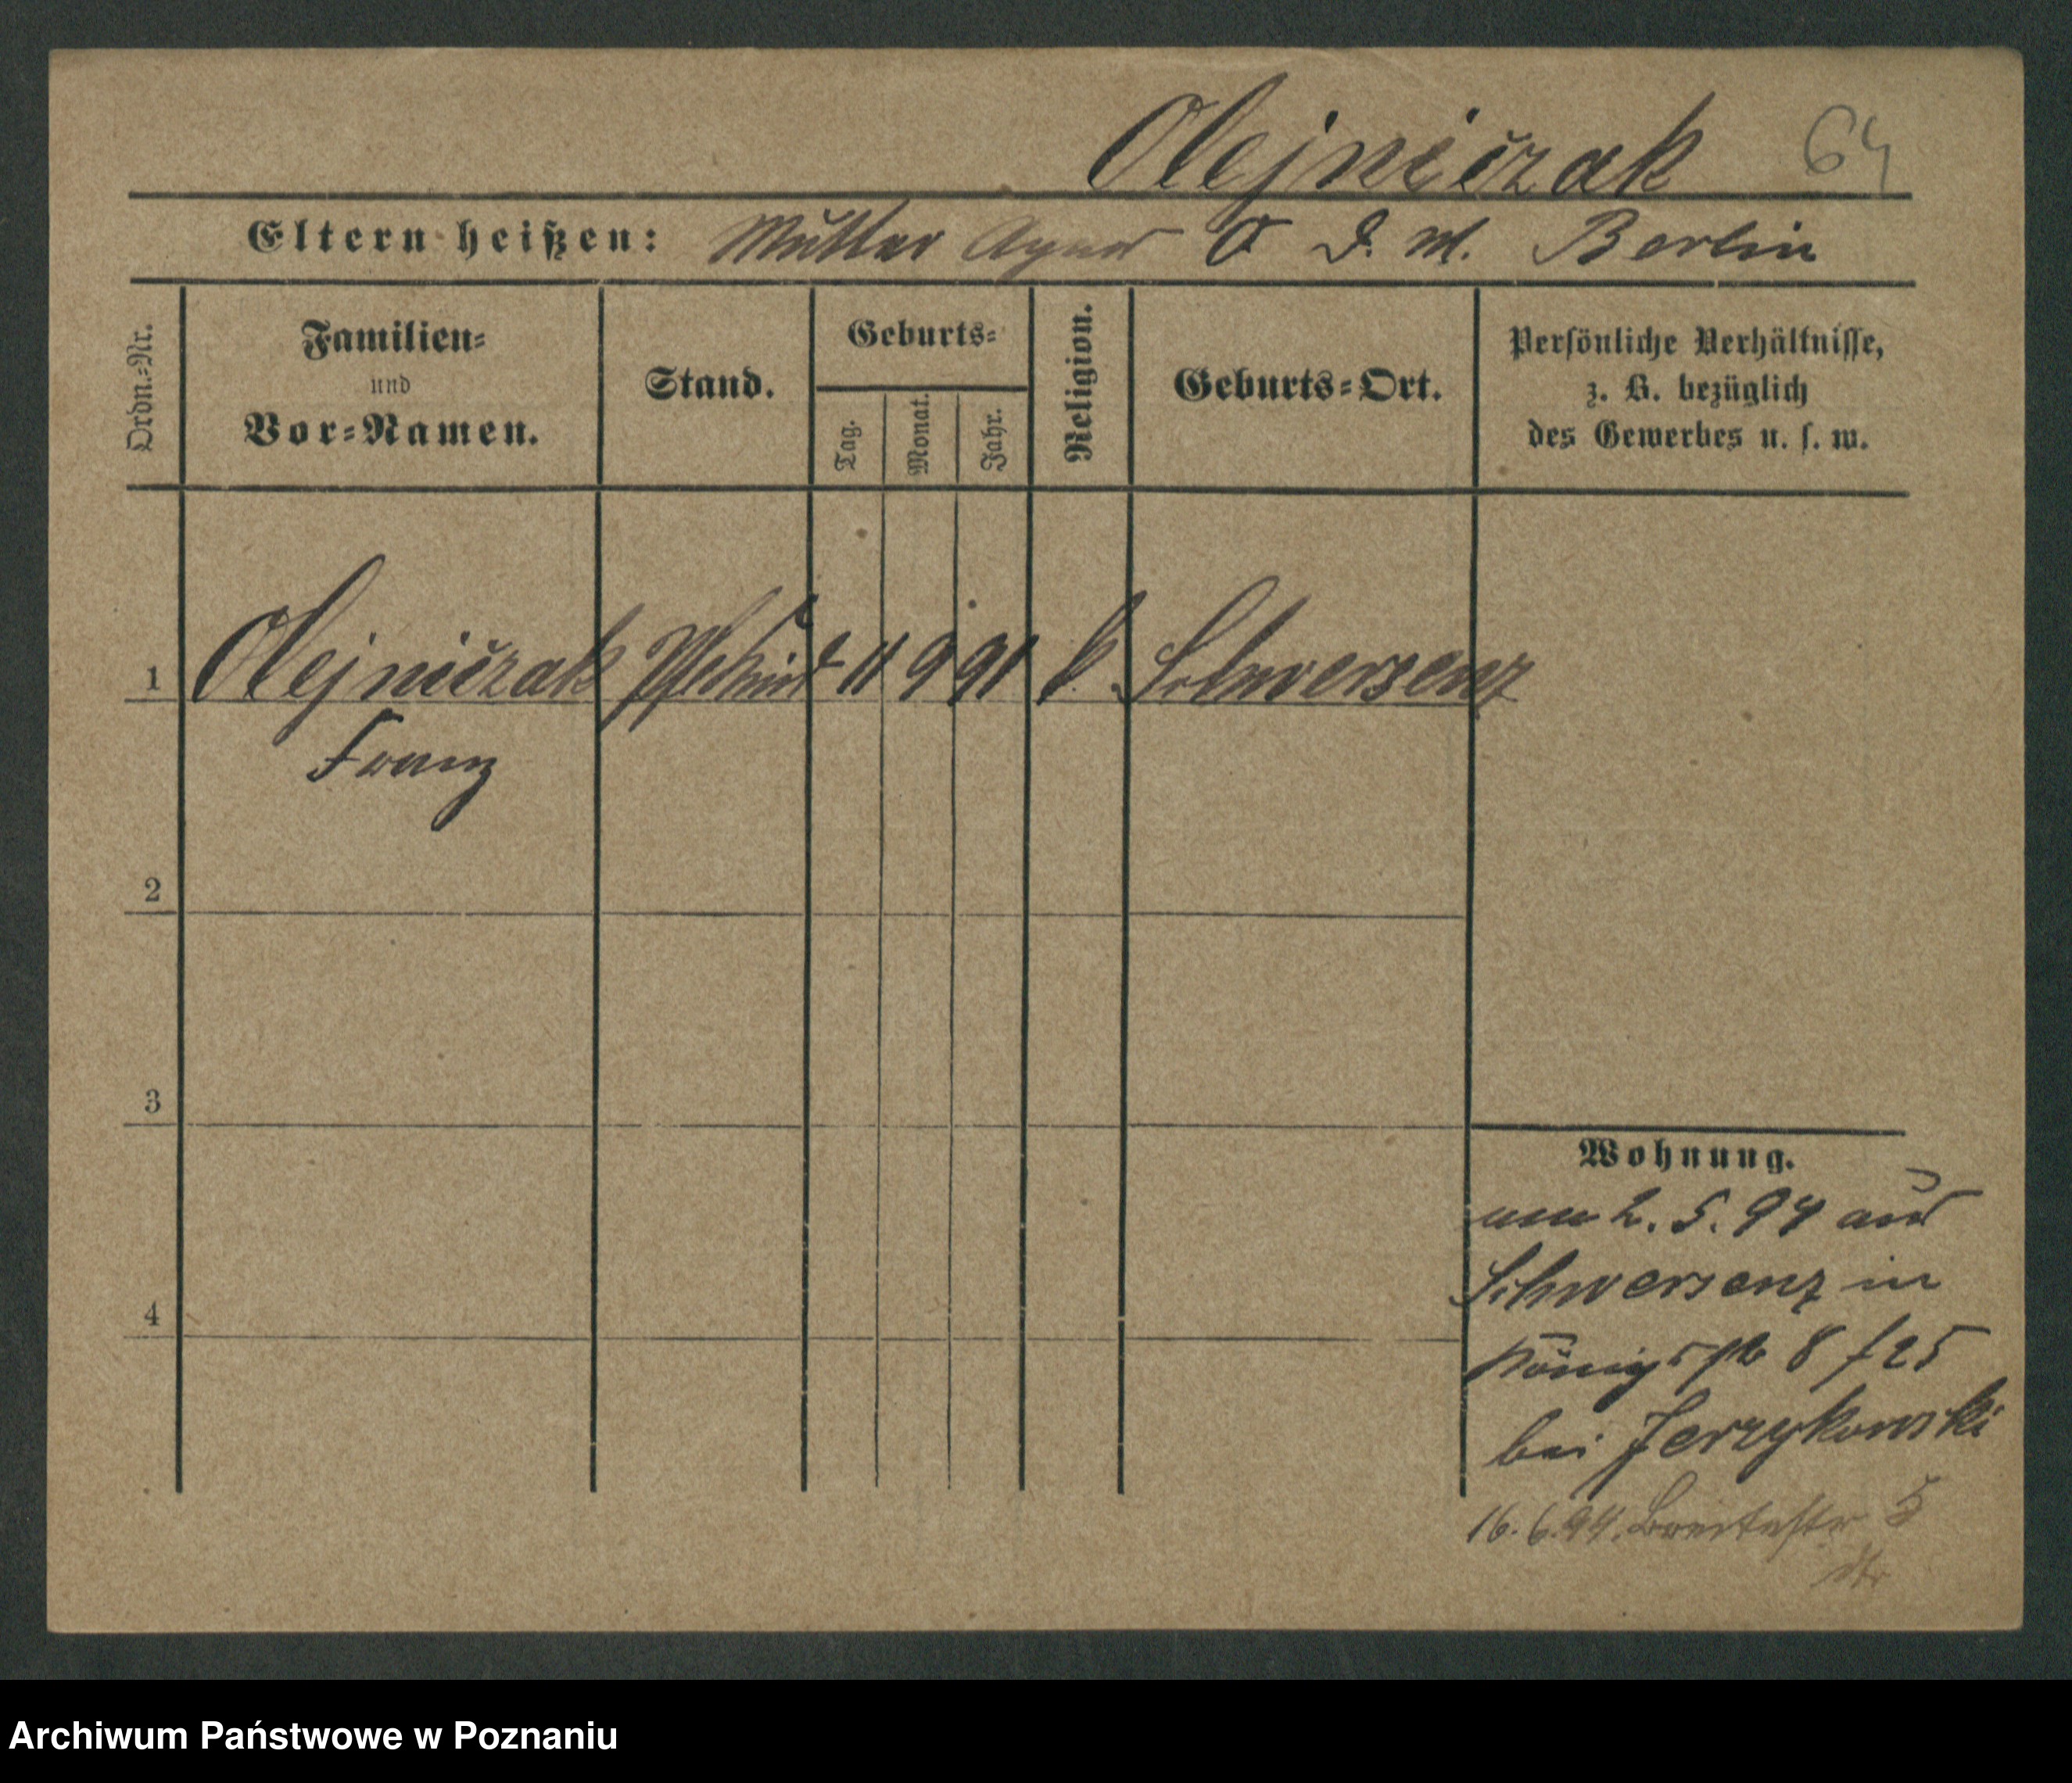 Olejniczak 64
Eltern heißen: Mutter Agnes O D. M. Berlin
Ordn.-Nr.
Familien-
und
Vor-Namen.
Stand.
Geburts-
Tag.
Monat.
Jahr.
Religion.
Geburts-Ort.
Persönliche Verhältnisse,
z. B. bezüglich
des Gewerbes u. s. w.
1 Olejniczak Pflekind 11 9 91 k. Schwersenz
Franz
2
3
4
Wohnung.
2. 5. 94 aus
Schwersenz in
Königspl 8 f 25
bei Jerzykowski
16. 6. 94. Breitestr 5
Archiwum Państwowe w Poznaniu